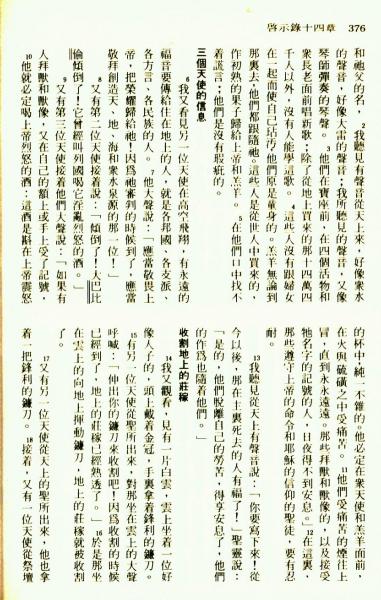 啓示錄十四章 376
和祂父的名。2我聽見有聲音從天上來，好像衆水
的聲音，好像大雷的聲音；我所聽見的聲音，又像
琴師彈奏的琴聲。3他們在寶座前，在四個活物和
衆長老面前唱新歌；除了從地上買來的那十四萬四
千人以外，沒有人能學這歌。4這些人沒有跟婦女
在一起而使自己玷汚，他們原是童身的。羔羊無論到
那裏去，他們都跟隨祂。這些人是從世人中買來的，
作初熟的果子歸給上帝和羔羊。5在他們口中找不
着謊言；他們是沒有瑕疵的。
三個天使的信息
6我又看見另一位天使在高空飛翔，有永遠的
福音要傳給住在地上的人，就是各邦國、各支派、
各方言、各民族的人。7他大聲說：「應當敬畏上
帝，把榮耀歸給祂！因爲祂審判的時候到了，應當
敬拜創造天、地、海和衆水泉源的那一位！」
8又有第二位天使接着說：「傾倒了！大巴比
倫傾倒了！它曾經叫列國喝它淫亂烈怒的酒。」
9又有第三位天使接着他們大聲說：「如果有
人拜獸和獸像，又在自己的額上或手上受了記號，
10他就必定喝上帝烈怒的酒；這酒是斟在上帝震怒
的杯中，純一不雜的。他必定在衆天使和羔羊面前，
在火與硫磺之中受痛苦。11他們受痛苦的煙往上
冒，直到永永遠遠。那些拜獸和獸像的，以及接受
牠名字的記號的人，日夜得不到安息。」12在這裏，
那些遵守上帝的命令和耶穌的信仰的聖徒，要有忍
耐。
13我聽見從天上有聲音說：「你要寫下來！從
今以後，那在主裏死去的人有福了！」聖靈說：
「是的，他們脫離自己的勞苦，得享安息了，他們
的作爲也隨着他們。」
收割地上的莊稼
14我又觀看，見有一片白雲，雲上坐着一位好
像人子的，頭上戴着金冠，手裏拿着鋒利的鐮刀。
15有另一位天使從聖所出來，對那坐在雲上的大聲
呼喊：「伸出你的鐮刀來收割吧！因爲收割的時候
已經到了，地上的莊稼已經熟透了。」16於是那坐
在雲上的向地上揮動鐮刀，地上的莊稼就被收割
了。
17又有另一位天使從天上的聖所出來，他也拿
着一把鋒利的鐮刀。18接着，又有一位天使從祭壇